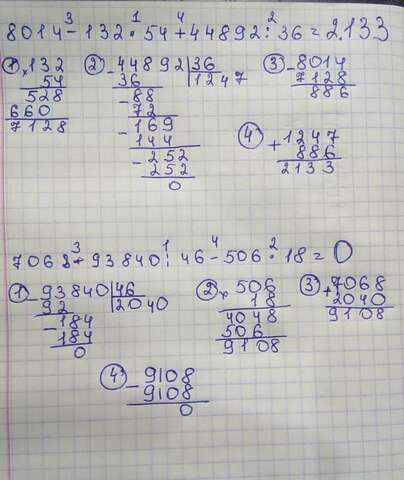 8014 - 132 · 54 + 44892 : 36 = 2133
3 1 4 2
1) × 132 2) - 44892 | 36 3) - 8014
54 36 1247 7128
528 - 88 886
660 72
7128 - 169
144 4) + 1247
- 252 886
252 2133
0
7068 + 93840 : 46 - 506 · 18 = 0
3 1 4 2
1) - 93840 | 46 2) × 506 3) + 7068
92 2040 18 2040
- 184 4048 9108
184 506
0 9108
4) - 9108
9108
0